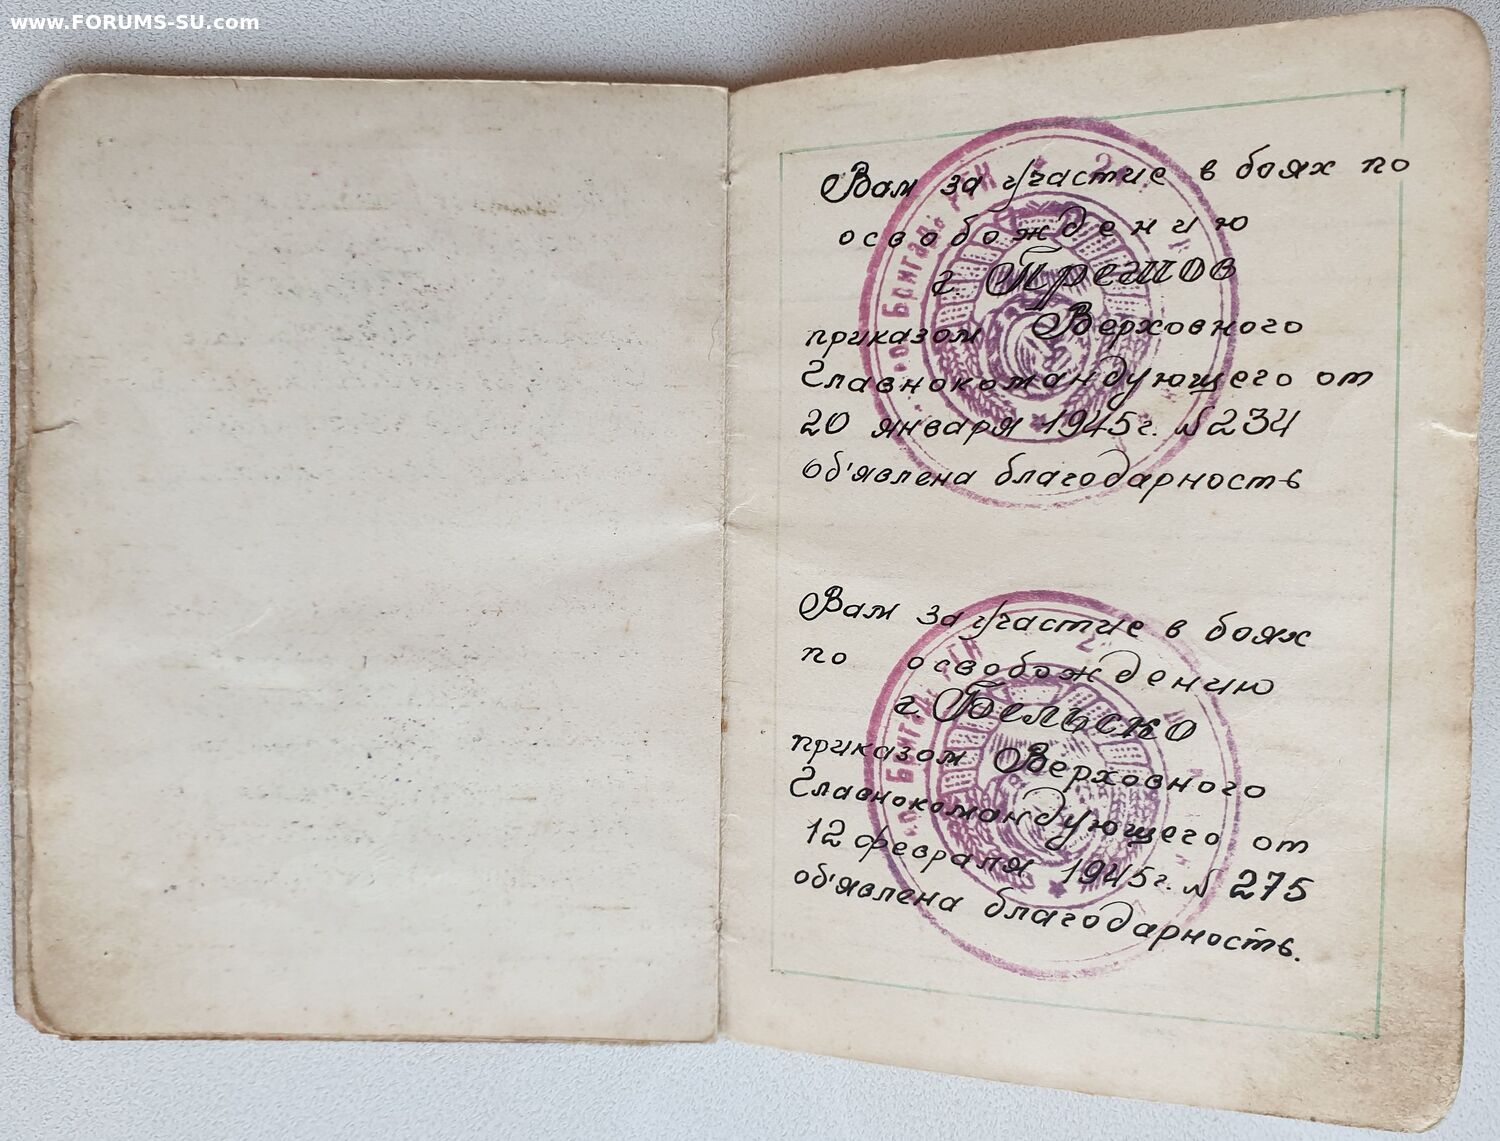 www.FORUMS-SU.com
Вам за участие в боях по
освобождению
г. Прешов
приказом Верховного
Главнокомандующего от
20 января 1945г. №234
Об'явлена благодарность
Вам за участие в боях
по освобождению
г. Бельско
приказом Верховного
Главнокомандующего от
12 февраля 1945г. № 275
об'явлена благодарность.
Бригады РГК
Бригады РГК